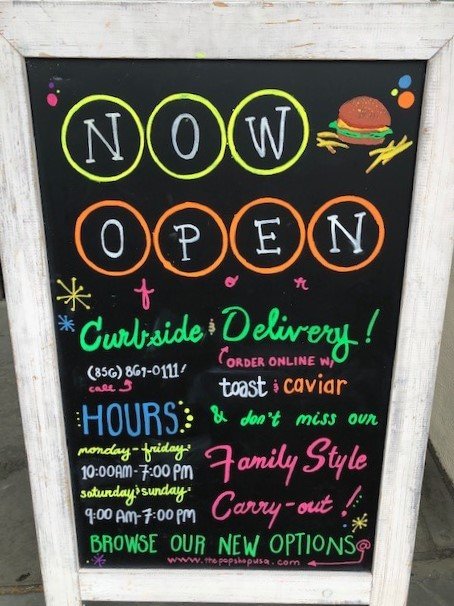 NOW
OPEN
for
Curbside & Delivery!
(856) 869-0111!
call
ORDER ONLINE W/
toast & caviar
HOURS:
& don't miss our
monday - friday:
10:00AM-7:00 PM
saturday & sunday:
9:00 AM-7:00 PM
Family Style
Carry-out!
BROWSE OUR NEW OPTIONS@
www.thepopshopusa.com